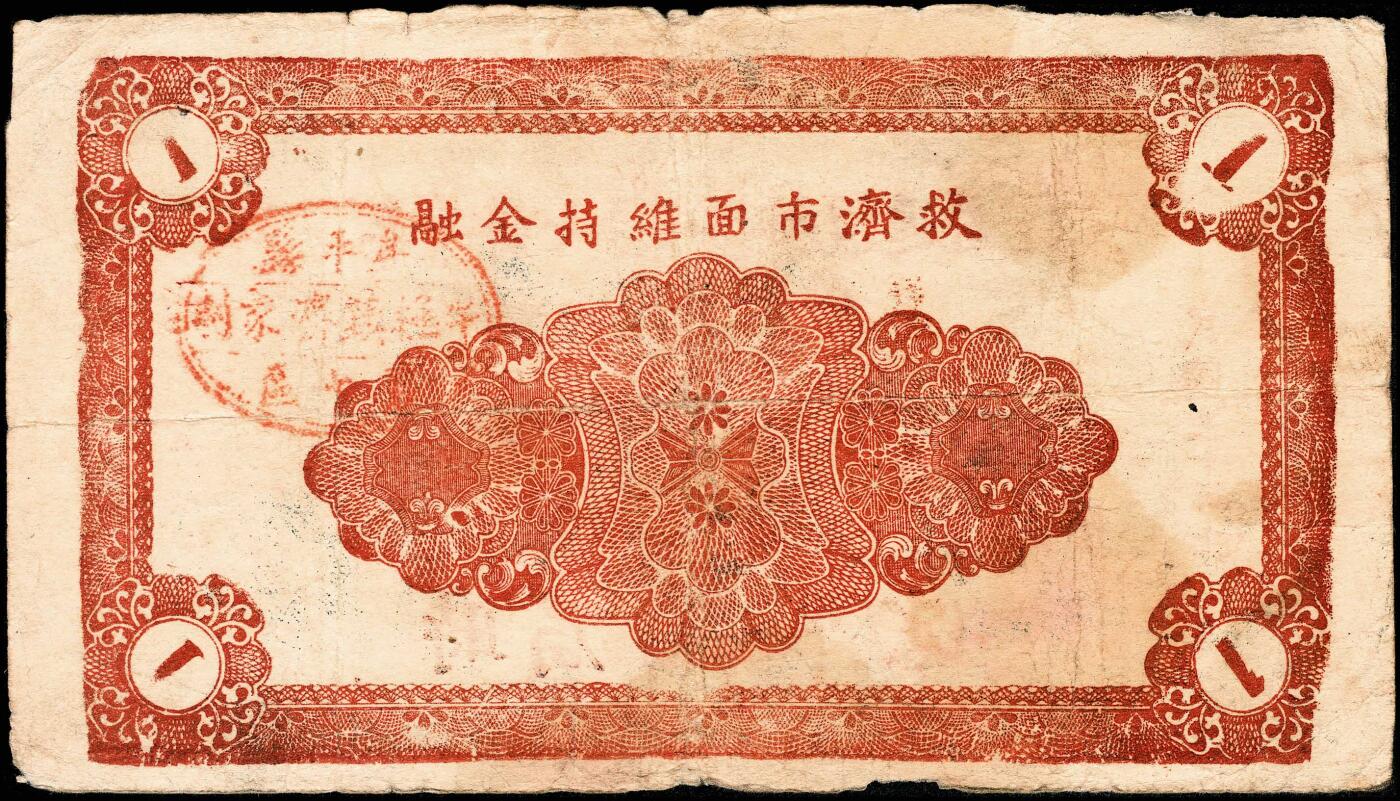 1
1
救濟市面維持金融
平縣
區
1
1